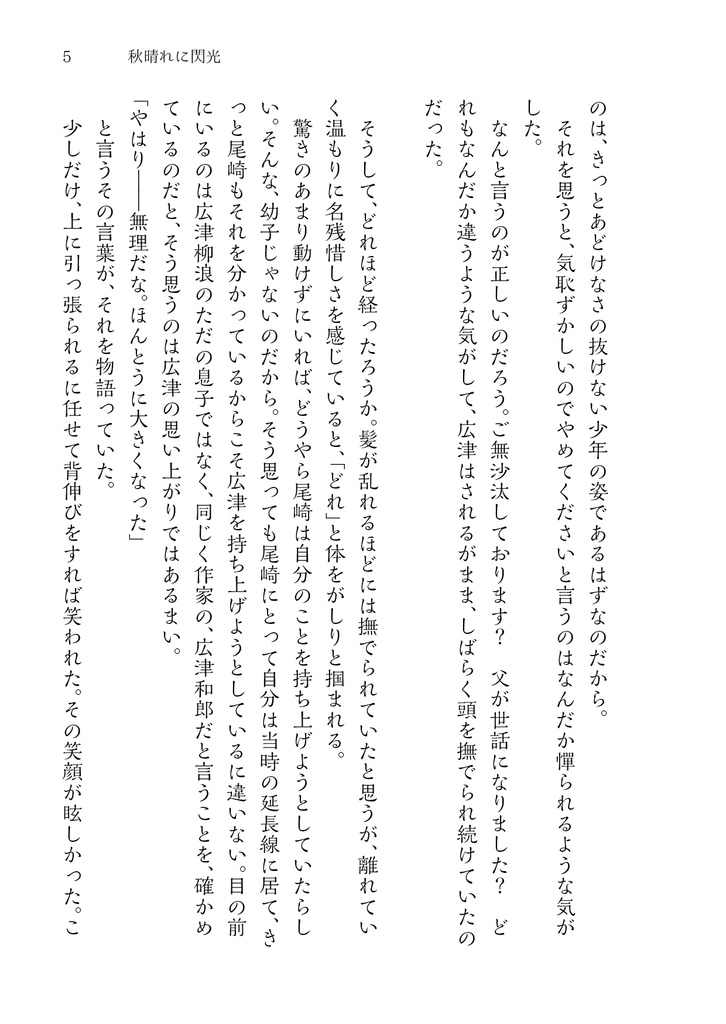 5
秋晴れに閃光
のは、きっとあどけなさの抜けない少年の姿であるはずなのだから。
　それを思うと、気恥ずかしいのでやめてくださいと言うのはなんだか憚られるような気が
した。
　なんと言うのが正しいのだろう。ご無沙汰しております？　父が世話になりました？　ど
れもなんだか違うような気がして、広津はされるがまま、しばらく頭を撫でられ続けていたの
だった。
　そうして、どれほど経ったろうか。髪が乱れるほどには撫でられていたと思うが、離れてい
く温もりに名残惜しさを感じていると、「どれ」と体をがしりと掴まれる。
　驚きのあまり動けずにいれば、どうやら尾崎は自分のことを持ち上げようとしていたらし
い。そんな、幼子じゃないのだから。そう思っても尾崎にとって自分は当時の延長線に居て、き
っと尾崎もそれを分かっているからこそ広津を持ち上げようとしているに違いない。目の前
にいるのは広津柳浪のただの息子ではなく、同じく作家の、広津和郎だと言うことを、確かめ
ているのだと、そう思うのは広津の思い上がりではあるまい。
「やはり――無理だな。ほんとうに大きくなった」
　と言うその言葉が、それを物語っていた。
　少しだけ、上に引っ張られるに任せて背伸びをすれば笑われた。その笑顔が眩しかった。こ